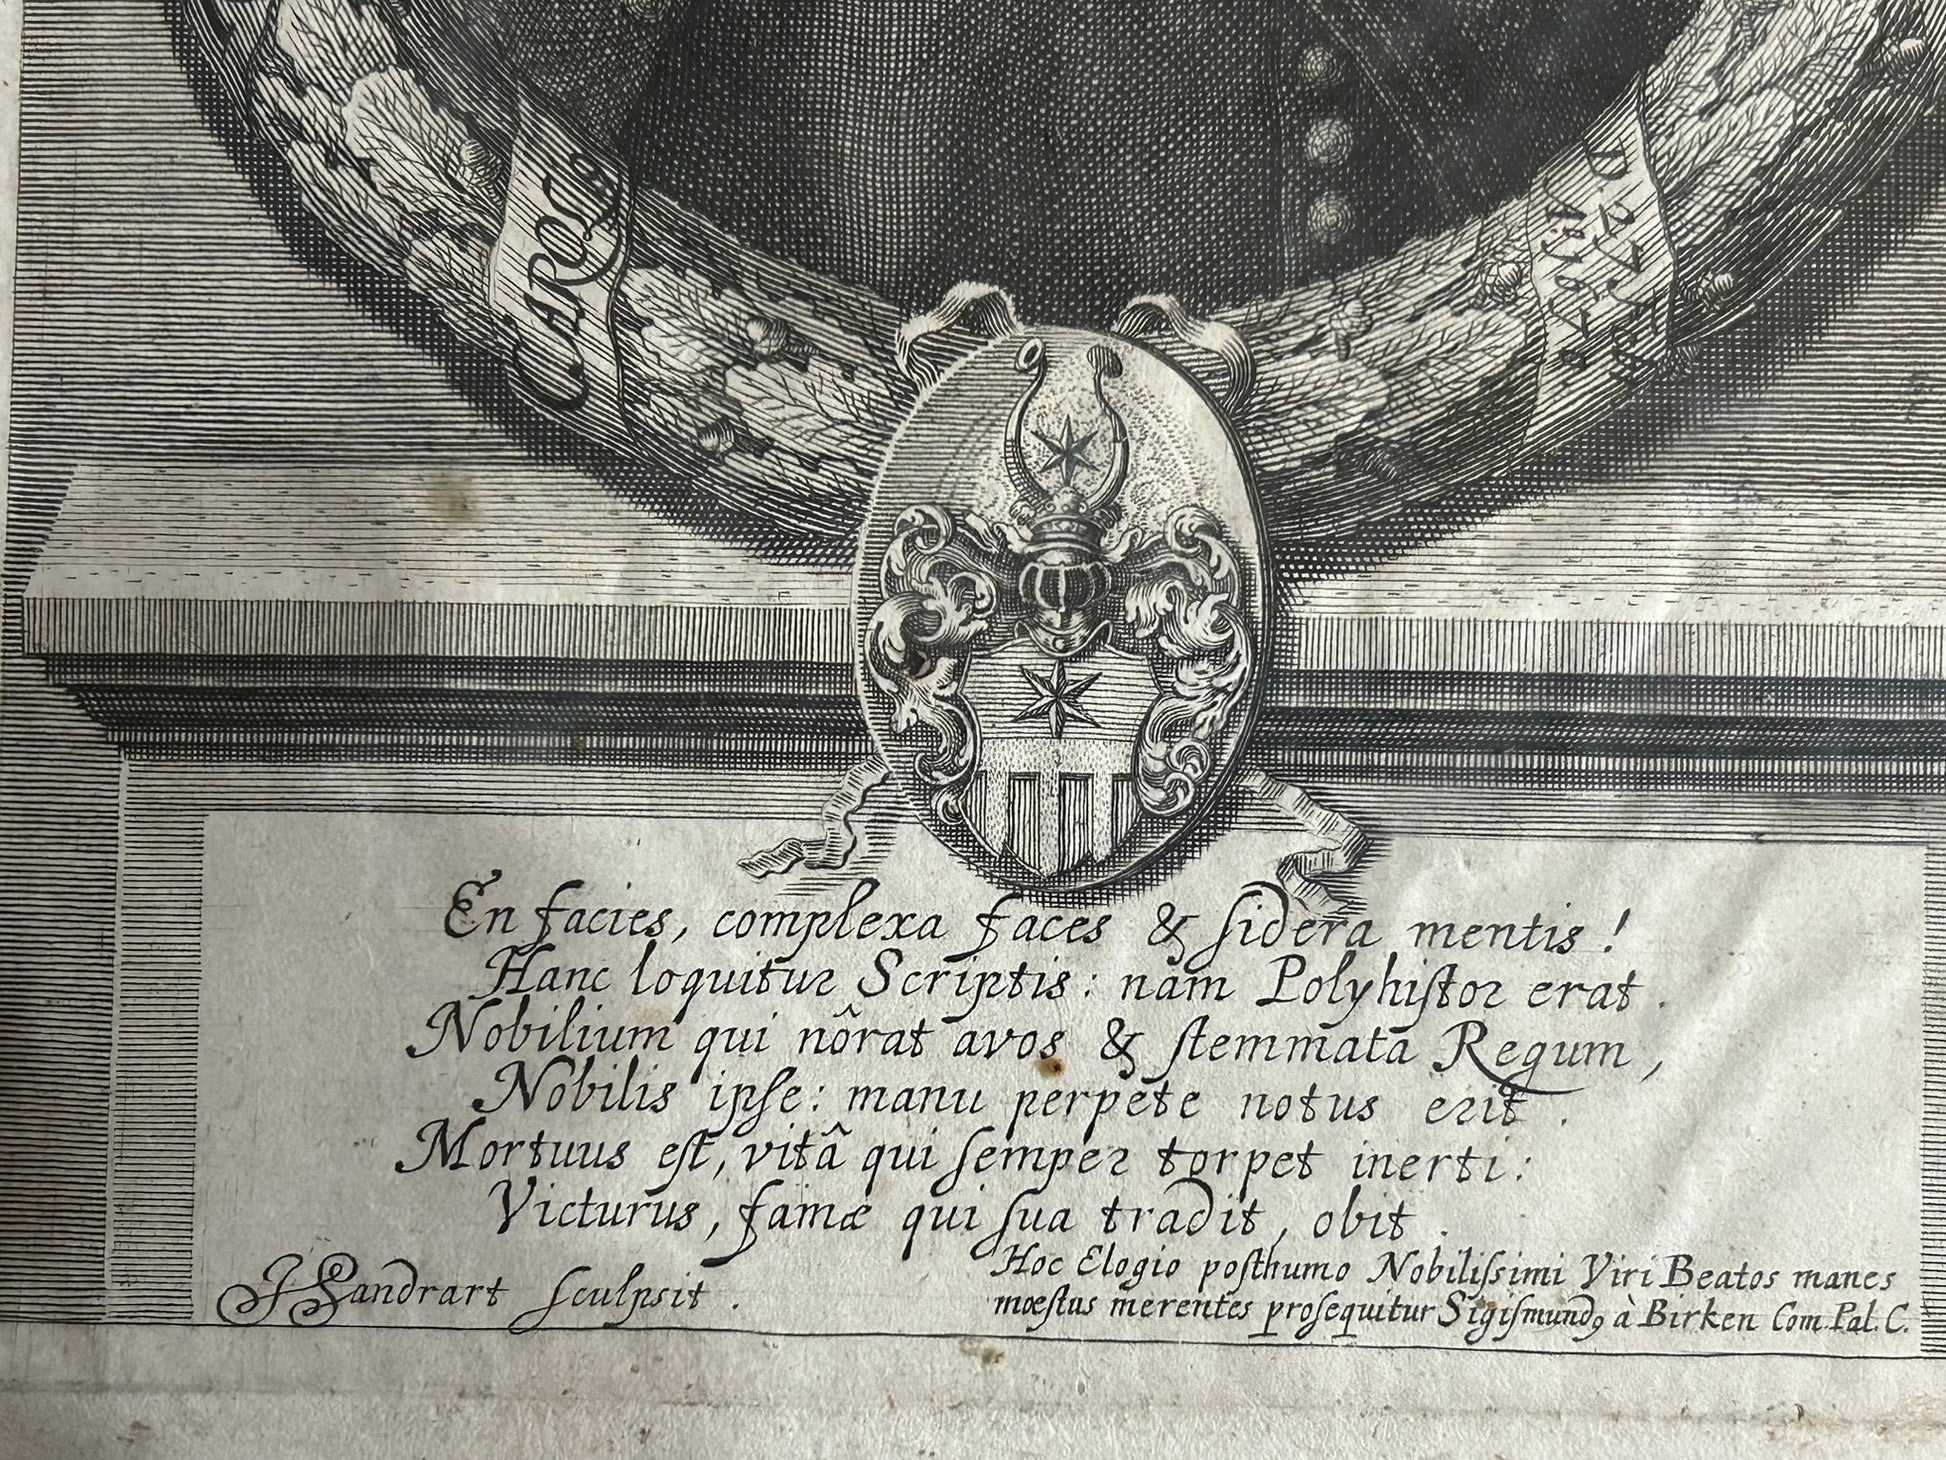 CAROL
D. 27
1670.
En facies, complexa faces & ſidera mentis!
Hanc loquitur Scriptis: nam Polyhiſtor erat.
Nobilium qui nôrat avos & ſtemmata Regum,
Nobilis ipſe: manu perpete notus erit.
Mortuus eſt, vitâ qui ſemper torpet inerti:
Victurus, famæ qui ſua tradit, obit.
JSandrart ſculpsit.
Hoc Elogio poſthumo Nobiliſsimi Viri Beatos manes
mœſtus merentes proſequitur Sigiſmundꝰ à Birken Com. Pal. C.